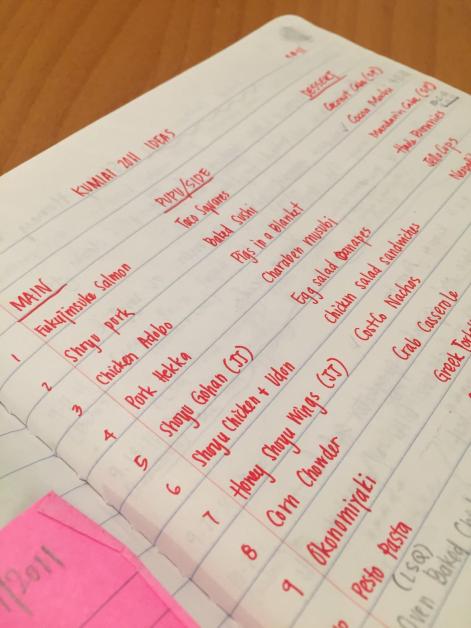 KUMIAI 2011 IDEAS
MAIN
1 Fukujinsuke Salmon
2 Shoyu pork
3 Chicken Adobo
4 Pork Hekka
5 Shoyu Gohan (JJ)
6 Shoyu Chicken + Udon
7 Honey Shoyu Wings (JJ)
8 Corn Chowder
9 Okonomiyaki
Pesto Pasta
(LSQ)
Oven Baked
PUPU/SIDE
Taco Squares
Baked Sushi
Pigs in a Blanket
Charaben musubi
Egg salad canapes
Chicken salad sandwiches
Costco Nachos
Crab Casserole
Greek
DESSERT
Coconut Cake
Cocoa Mochi
Mandarin Cake
Brownies
Jello Cups
/2011